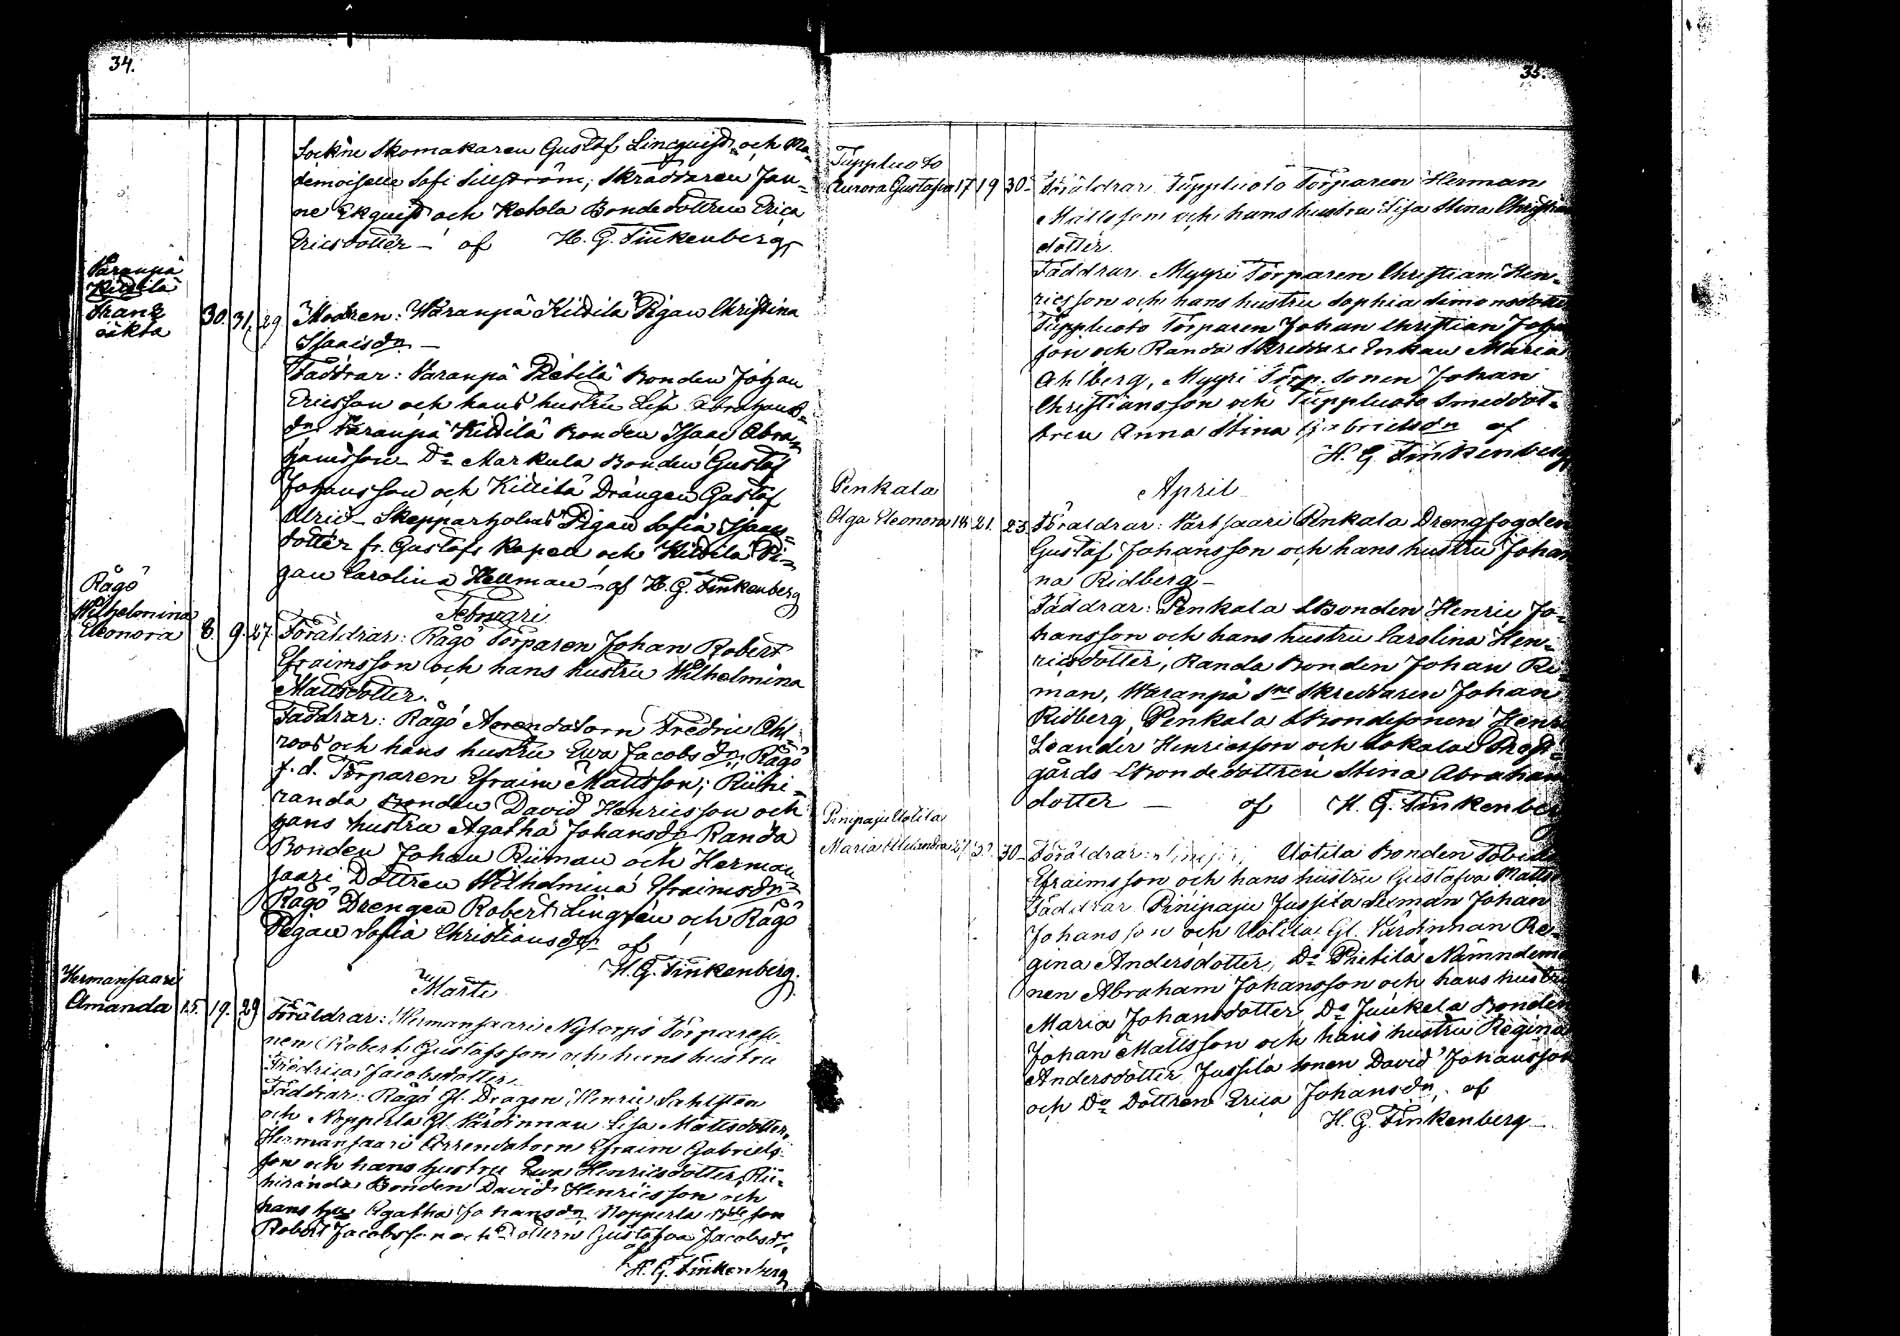 34.
Sockne Skomakaren Gustaf Lincquist och Ma-
demoiselle Sofi Sillström; Skräddaren Jan-
ne Ekquist och Ketola Bondedottren Erica
Ericsdotter – af H. G. Finkenberg
Waranpä
Killilä
Frans
oäkta 30. 31. 29 Modren: Waranpä Killilä Pigan Christina
Isaacsdr –
Faddrar: Varanpä Pietilä Bonden Johan
Ericsson och hans hustru Lisa Abrahams-
dr Varanpä Killilä Bonden Isaac Abra-
hamsson Do Markula Bonden Gustaf
Johansson och Killilä Drängen Gustaf
Ulric – Skepparholms Pigan Sofia Isaacs-
dotter fr. Gustafs Kapell och Killilä Pi-
gan Carolina Hellman – af H. G. Finkenberg
Februari
Rågö
Wilhelmina
Eleonora 8. 9. 27. Föräldrar: Rågö Torparen Johan Robert
Efraimsson och hans hustru Wilhelmina
Mattsdotter.
Faddrar: Rågö Arendatorn Fredric Ahl-
roos och hans hustru Ewa Jacobsdr; Rågö
f. d. Torparen Efraim Mattsson; Riihi-
randa Bonden David Henricsson och
hans hustru Agatha Johansdr Randa
Bonden Johan Riiman och Herman
saari Dottren Wilhelmina Efraimsdr
Rågö Drengen Robert Lingren och Rågö
Pigan Sofia Christiansdr af
H. G. Finkenberg.
Marti
Hermansaari
Amanda 15. 19. 29 Föräldrar: Hermansaari Nytorps Torpareso-
nen Robert Gustafsson och hans hustru
Fredrica Jacobsdotter.
Faddrar: Rågö Gl. Dragon Henric Sahlsten
och Nopperla Gl. Värdinnan Lisa Mattsdotter,
Hermansaari Arrendatorn Efraim Gabriels-
son och hans hustru Ewa Henricsdotter, Rii-
hiranda Bonden David Henricsson och
hans hu Agatha Johansdr Nopperla Bde son
Robert Jacobsson och Do dottern Gustafva Jacobsdr
af
H. G. Finkenberg
35.
Tuppluoto
Aurora Gustafva 17 19 30 – Föräldrar Tuppluoto Torparen Herman
Mattsson och hans hustru Lisa Stina Christian
dotter.
Faddrar Myyri Torparen Christian Hen-
ricsson och hans hustru Sophia Simonsdotter
Tuppluoto Torparen Johan Christian Johan
son och Randa Skreddare Enkan Maria
Ahlberg, Myyri Torp. sonen Johan
Christiansson och Tuppluoto Smeddot-
tren Anna Stina Gabrielsdr af
H. G. Finkenberg
April
Penkala
Olga Eleonora 18. 21. 23 Föräldrar: Vartsaari Penkala Drengfogden
Gustaf Johansson och hans hustru Johan
na Ridberg –
Faddrar: Penkala Bonden Henric Jo-
hansson och hans hustru Carolina Hen-
ricsdotter, Randa Bonden Johan Rii-
man, Waranpä Sne Skreddaren Johan
Ridberg, Penkala Bondesonen Henric
Leander Henricsson och Lokalax Prest-
gårds Bondedottren Stina Abraham
dotter – af H. G. Finkenberg
Pinipaju Uotila
Maria Alexandra 27. 30 – Föräldrar: Uotila Bonden Tobias
Efraimsson och hans hustru Gustafva Matts
Faddrar Pinipaju Jussila Leeman Johan
Johansson och Uotila Gl. Värdinnan Re-
gina Andersdotter, Do Pietilä Nämndem
nen Abraham Johansson och hans hustru
Maria Johansdotter, Do Junkela Bonden
Johan Mattsson och hans hustru Regina
Andersdotter, Jussila sonen David Johansson
och Do Dottren Erica Johansdr, af
H. G. Finkenberg –